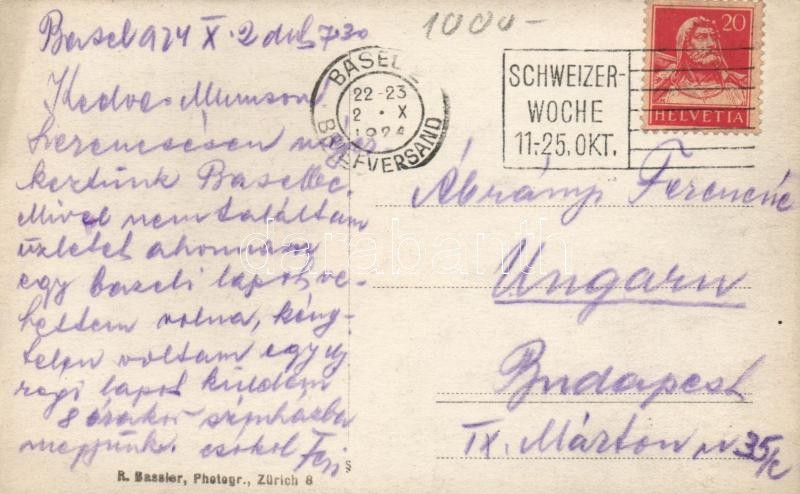 1000-
Basel 924 X. 2 du. 7.30
Kedves Mumson!
Szerencsésen meg
keztünk Baselbe.
Mivel nem találtam
üzletet ahonnan
egy baseli lapot ve-
hettem volna, kény-
telen voltam egy új
ragi lapot küldeni
8 órakor színházba
megyünk. csókol Feri
R. Bassler, Photogr., Zürich 8
BASEL
22-23
2 · X
1924
BRIEFVERSAND
SCHWEIZER-
WOCHE
11.-25. OKT.
20
HELVETIA
Ábrányi Ferencné
Ungarn
Budapest
IX. Márton u 35/c
darabanth